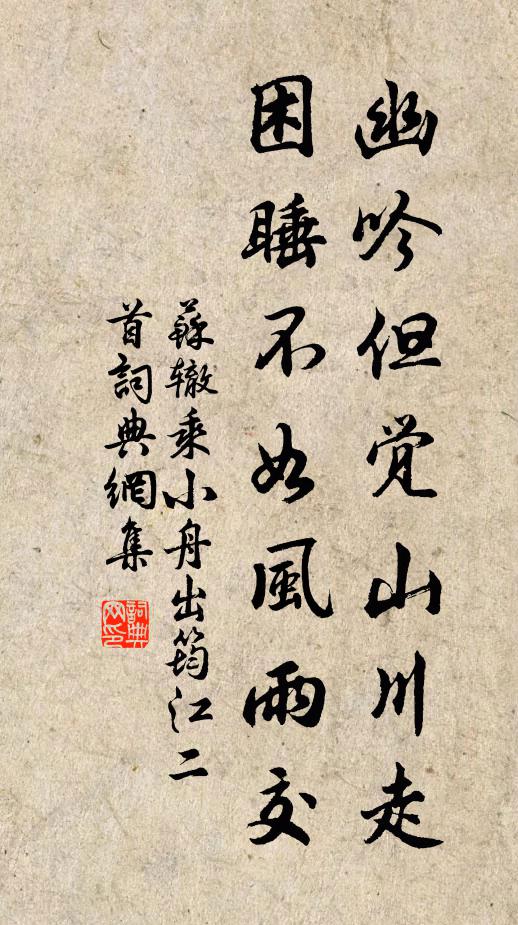 幽吟但觉山川走
困睡不如風雨交
蘇辙乘小舟出筠江二
首詞典網集
詞典網印